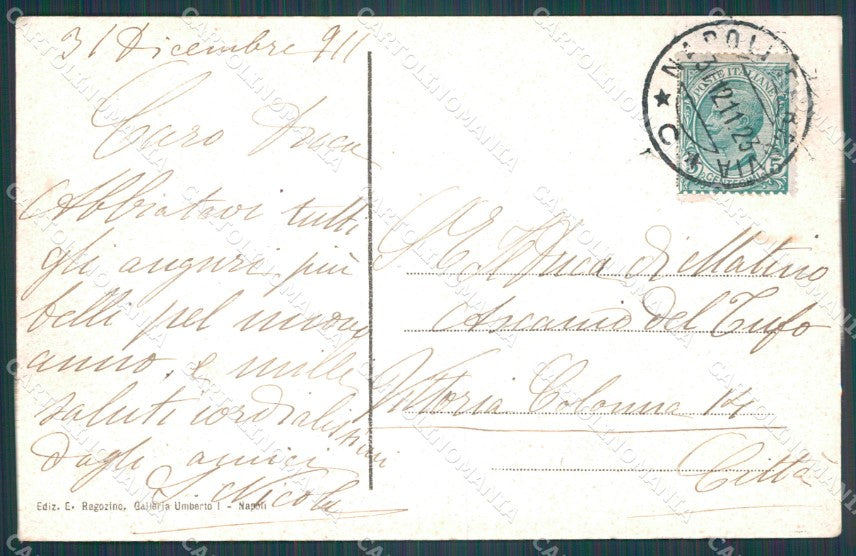 31 Dicembre 911
Caro Duca
Abbiatevi tutti
gli auguri più
belli pel nuovo
anno, e mille
saluti cordialissimi
dagli amici
Nicola
Ediz. E. Ragozino, Galleria Umberto I - Napoli
NAPOLI FERROVIA
31.12.11.23
POSTE ITALIANE
S. E. Duca di Matino
Ascanio del Tufo
Vittoria Colonna 14
Città
CARTOLINOMANIA